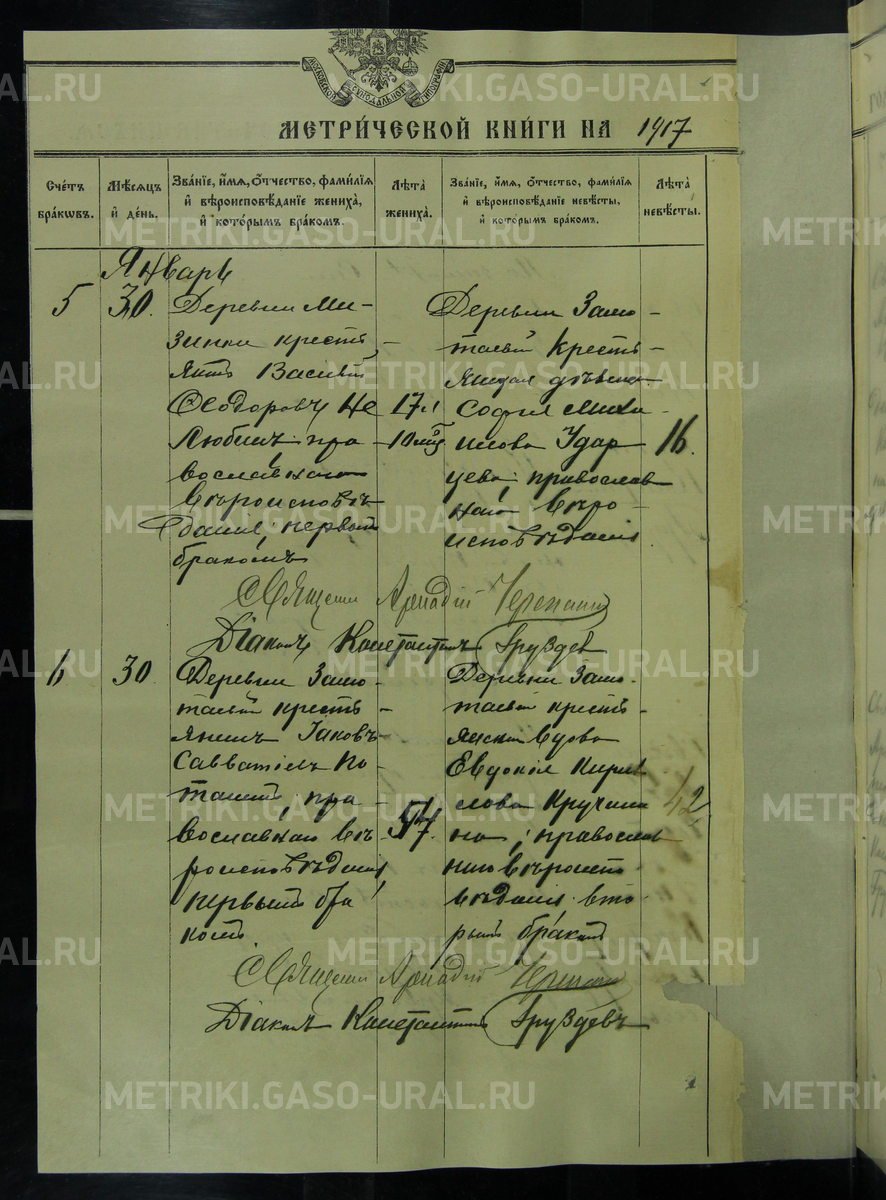 МОСКОВСКОЙ СѴНОДАЛЬНОЙ ТИПОГРАФІИ
МЕТРИ́ЧЕСКОЙ КНИ́ГИ НА 1917
Сче́тъ бра́кωвъ.
Мѣ́сяцъ и҆ де́нь.
Зва́нїе, и҆́мя, ѻ҆́тчество, фами́лїя и҆ вѣроисповѣ́данїе жениха̀, и҆ кото́рымъ бра́комъ.
Лѣ́та жениха̀.
Зва́нїе, и҆́мя, ѻ҆́тчество, фами́лїя и҆ вѣроисповѣ́данїе невѣ́сты, и҆ кото́рымъ бра́комъ.
Лѣ́та невѣ́сты.
Январь
5
30.
Деревни Ми-
зинки кресть-
янинъ Василій
Ѳеодоровъ Не
любинъ, пра-
вославнаго
вѣроисповѣ-
данія, первымъ
бракомъ
17 л
10 мѣс
Деревни Замо-
таевой кресть-
янская дѣвица
Софія Михаи
илова Удар
цева, православ
наго вѣро-
исповѣданія
16
Священ Аркадій
Діаконъ Константинъ Груздев
6
30
Деревни Замо-
таевой кресть-
янинъ Іаковъ
Савватіевъ По
таповъ, пра-
вославнаго вѣ-
роисповѣданія,
первымъ бра
комъ
57.
Деревни Замо-
таевой кресть-
янская вдова
Евдокія Кирил
лова Кручини
на, православ
наго вѣроиспо
вѣданія вто-
рымъ бракомъ
42
Священ Аркадій
Діаконъ Константинъ Груздевъ
METRIKI.GASO-URAL.RU